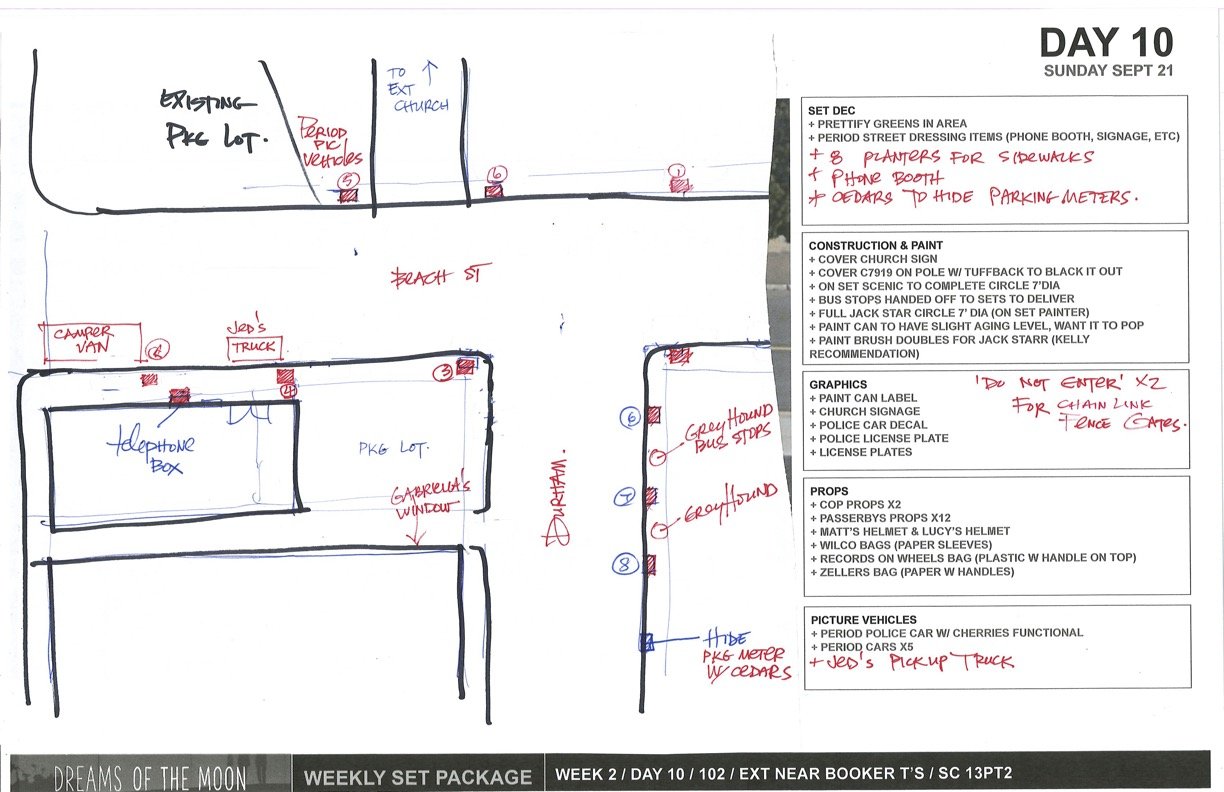 DAY 10
SUNDAY SEPT 21
EXISTING
PKG LOT.
PERIOD
PIC
VEHICLES
TO
EXT
CHURCH
5
6
1
BEACH ST
CAMPER
VAN
2
JED'S
TRUCK
3
4
telephone
BOX
PKG LOT.
GABRIELLA'S
WINDOW
DURHAM.
6
GREYHOUND
BUS STOPS
7
GREYHOUND
8
HIDE
PKG METER
W/ CEDARS
SET DEC
+ PRETTIFY GREENS IN AREA
+ PERIOD STREET DRESSING ITEMS (PHONE BOOTH, SIGNAGE, ETC)
+ 8 PLANTERS FOR SIDEWALKS
+ PHONE BOOTH
+ CEDARS TO HIDE PARKING METERS.
CONSTRUCTION & PAINT
+ COVER CHURCH SIGN
+ COVER C7919 ON POLE W/ TUFFBACK TO BLACK IT OUT
+ ON SET SCENIC TO COMPLETE CIRCLE 7'DIA
+ BUS STOPS HANDED OFF TO SETS TO DELIVER
+ FULL JACK STAR CIRCLE 7' DIA (ON SET PAINTER)
+ PAINT CAN TO HAVE SLIGHT AGING LEVEL, WANT IT TO POP
+ PAINT BRUSH DOUBLES FOR JACK STARR (KELLY
RECOMMENDATION)
GRAPHICS
+ PAINT CAN LABEL
+ CHURCH SIGNAGE
+ POLICE CAR DECAL
+ POLICE LICENSE PLATE
+ LICENSE PLATES
'DO NOT ENTER' X2
FOR CHAIN LINK
FENCE GATES.
PROPS
+ COP PROPS X2
+ PASSERBYS PROPS X12
+ MATT'S HELMET & LUCY'S HELMET
+ WILCO BAGS (PAPER SLEEVES)
+ RECORDS ON WHEELS BAG (PLASTIC W HANDLE ON TOP)
+ ZELLERS BAG (PAPER W HANDLES)
PICTURE VEHICLES
+ PERIOD POLICE CAR W/ CHERRIES FUNCTIONAL
+ PERIOD CARS X5
+ JED'S PICKUP TRUCK
DREAMS OF THE MOON
WEEKLY SET PACKAGE
WEEK 2 / DAY 10 / 102 / EXT NEAR BOOKER T'S / SC 13PT2